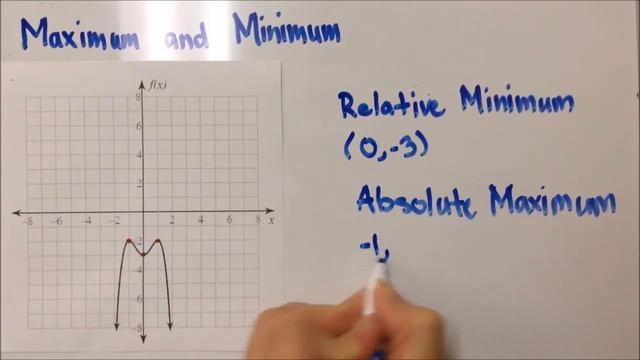 Maximum and Minimum
f(x)
8
6
4
2
-8 -6 -4 -2 2 4 6 8 x
-2
-4
-6
-8
Relative Minimum
(0,-3)
Absolute Maximum
-1,